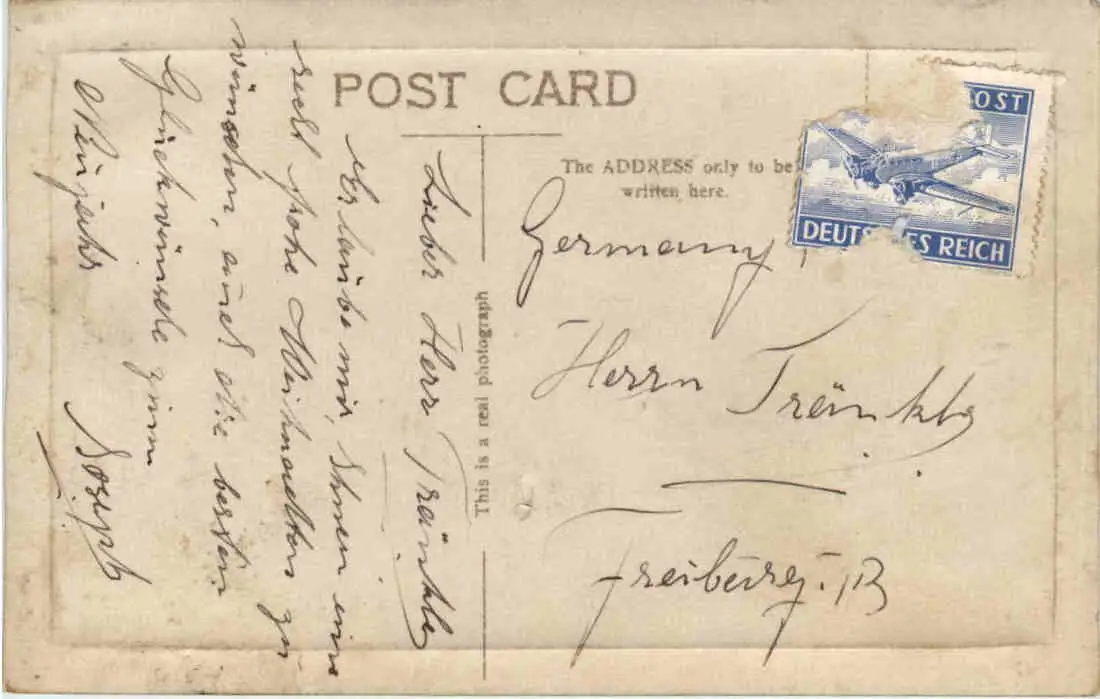 POST CARD
The ADDRESS only to be
written here.
This is a real photograph
OST
DEUTS ES REICH
Germany,
Herrn Tränkle
Freiburg i. B
Lieber Herr Tränkle
Erlaube mir, Ihnen eine
recht frohe Weihnachten zu
wünschen, auch die besten
Glückwünsche zum
Neujahr
Joseph